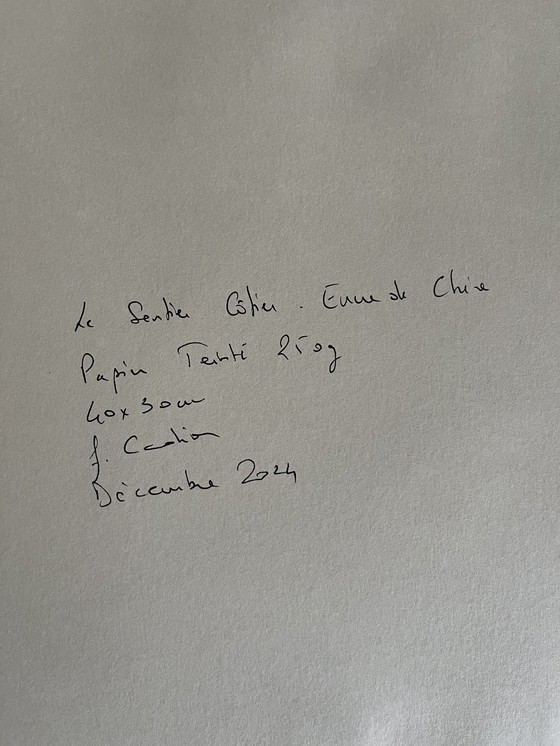 Le Sentier Côtier . Encre de Chine
Papier Teinté 250g
40x30cm
Décembre 2024